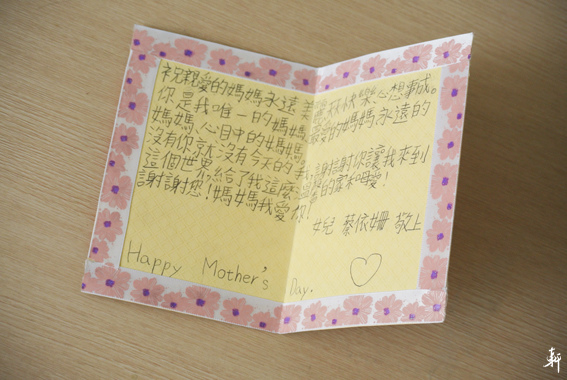 祝親愛的媽媽永遠美快樂心想事成。
你是我唯一的媽媽最愛的媽媽永遠的
媽媽,心目中的媽媽
沒有你就沒有今天的我,謝謝你讓我來到
這個世界,給了我這麼多的和愛!
謝謝您!媽媽我愛你!
女兒 蔡依姍 敬上
Happy Mother's Day.